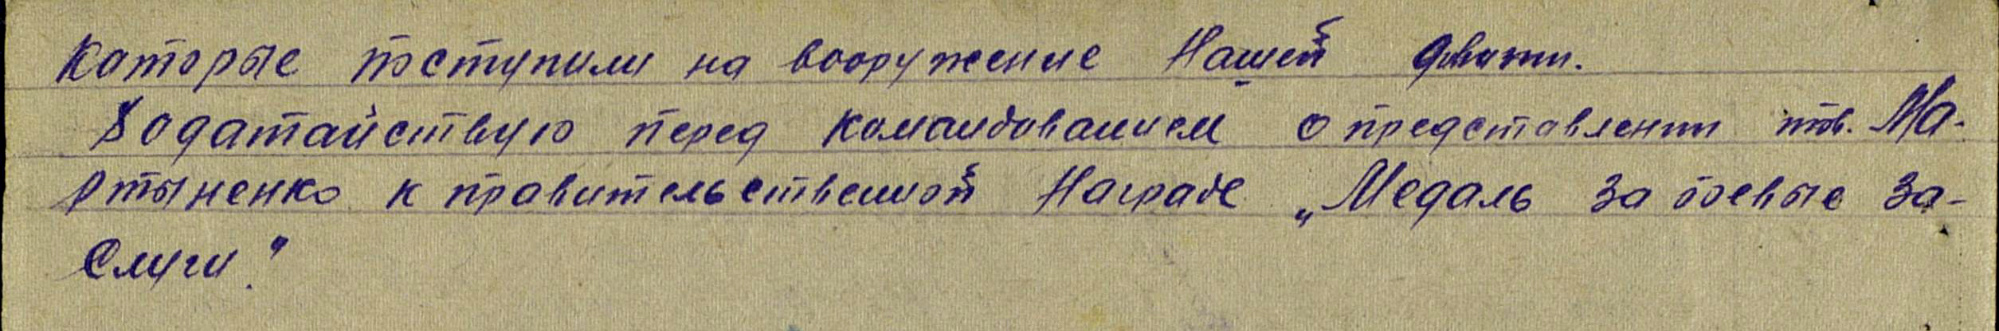 которые поступили на вооружение Нашей Армии.
Ходатайствую перед командованием о представлении тов. Ма-
ртыненко к правительственной Награде „Медаль за боевые за-
слуги."